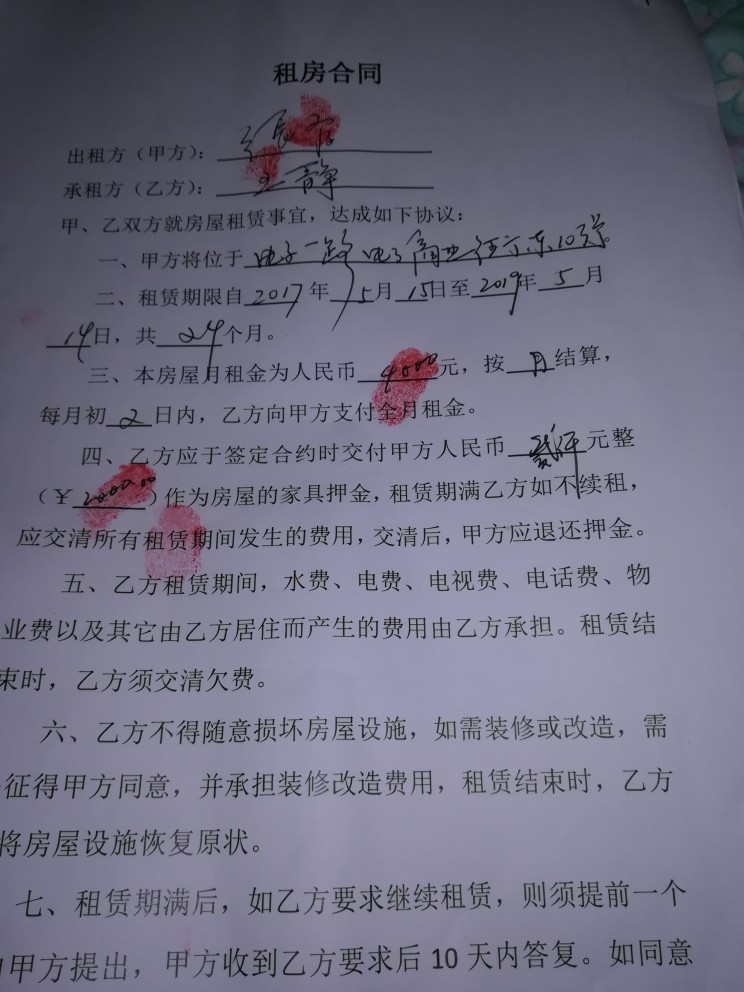 租房合同
出租方（甲方）：
承租方（乙方）：王静
甲、乙双方就房屋租赁事宜，达成如下协议：
一、甲方将位于电子一路电子商业街东10号
二、租赁期限自2017年5月15日至2019年5月
14日，共24个月。
三、本房屋月租金为人民币4000元，按月结算，
每月初2日内，乙方向甲方支付全月租金。
四、乙方应于签定合约时交付甲方人民币元整
（￥）作为房屋的家具押金，租赁期满乙方如不续租，
应交清所有租赁期间发生的费用，交清后，甲方应退还押金。
五、乙方租赁期间，水费、电费、电视费、电话费、物
业费以及其它由乙方居住而产生的费用由乙方承担。租赁结
束时，乙方须交清欠费。
六、乙方不得随意损坏房屋设施，如需装修或改造，需
征得甲方同意，并承担装修改造费用，租赁结束时，乙方
将房屋设施恢复原状。
七、租赁期满后，如乙方要求继续租赁，则须提前一个
甲方提出，甲方收到乙方要求后10天内答复。如同意